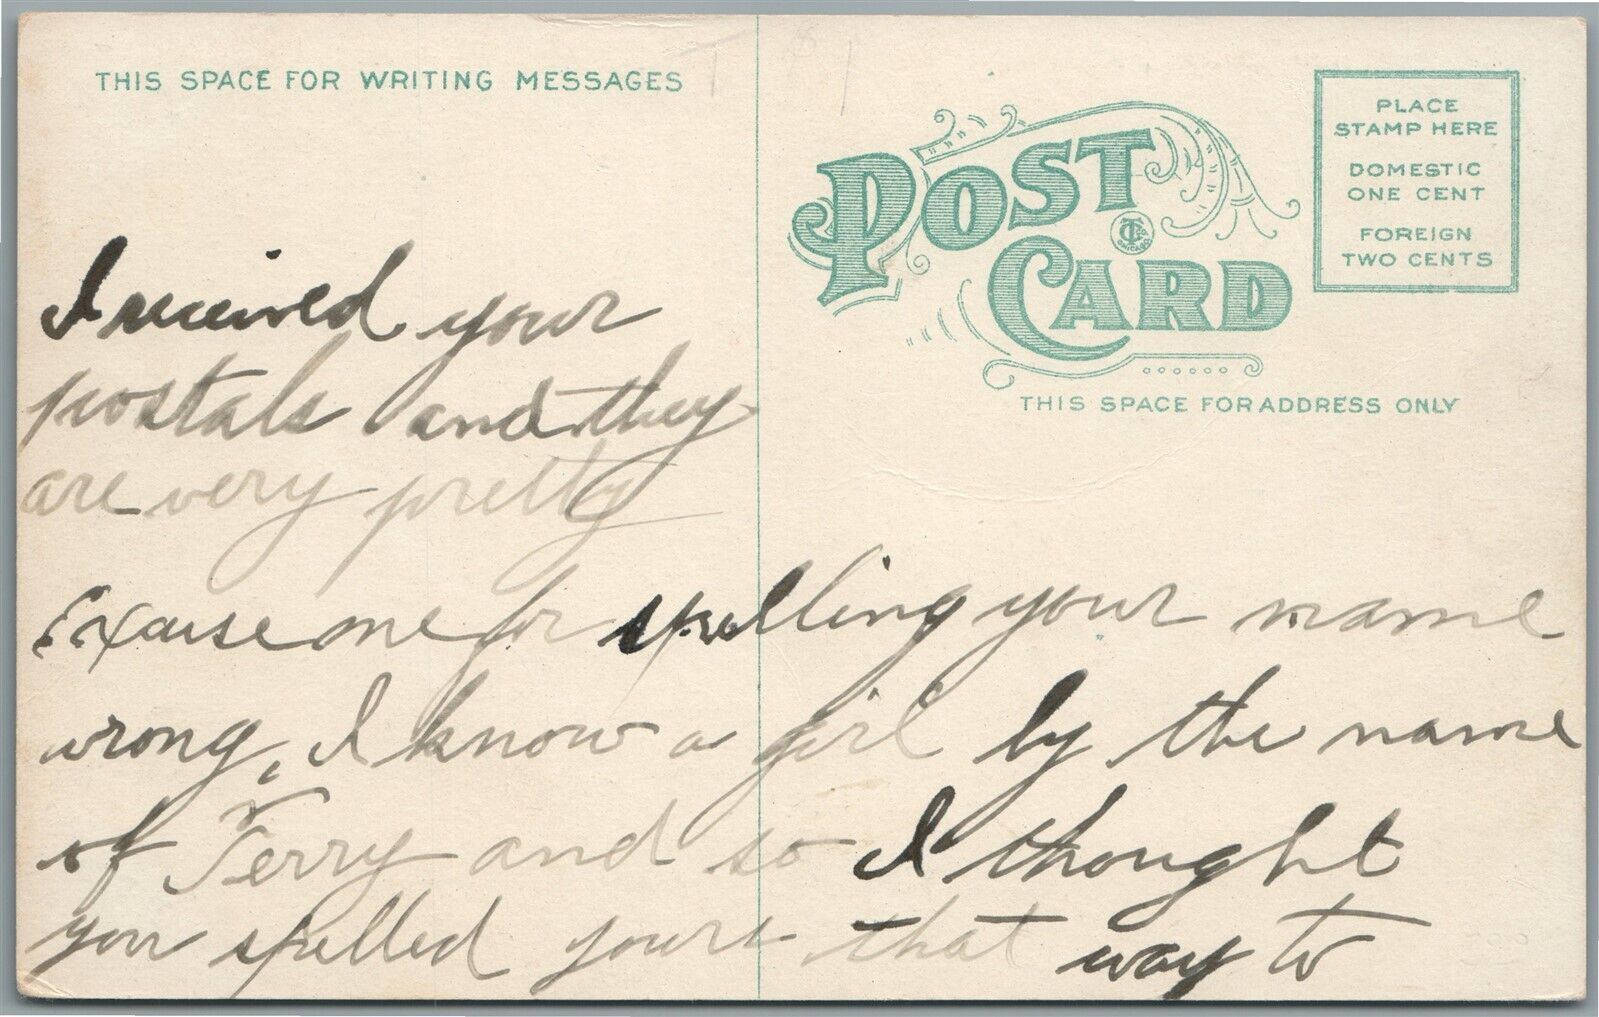 THIS SPACE FOR WRITING MESSAGES
POST
CARD
PLACE
STAMP HERE
DOMESTIC
ONE CENT
FOREIGN
TWO CENTS
THIS SPACE FOR ADDRESS ONLY
I received your
postals and they
are very pretty
Excuse me for spelling your name
wrong, I know a girl by the name
of Terry and so I thought
you spelled yours that way to